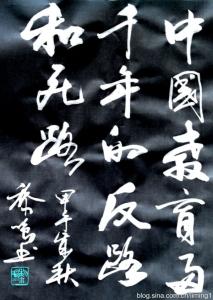 中國教育百
千年的反路
和死路
甲午年秋
喬
blog.sina.com.cn/liming1